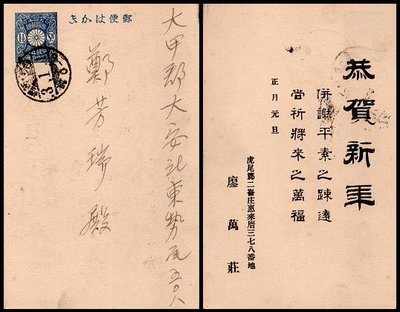 郵便はかき
大甲郡大安庄東勢尾五〇八
鄭芳瑞殿
恭賀新年
併謝平素之疎遠
尚祈將來之萬福
正月元旦
虎尾郡二崙庄惠來厝三七八番地
廖萬莊